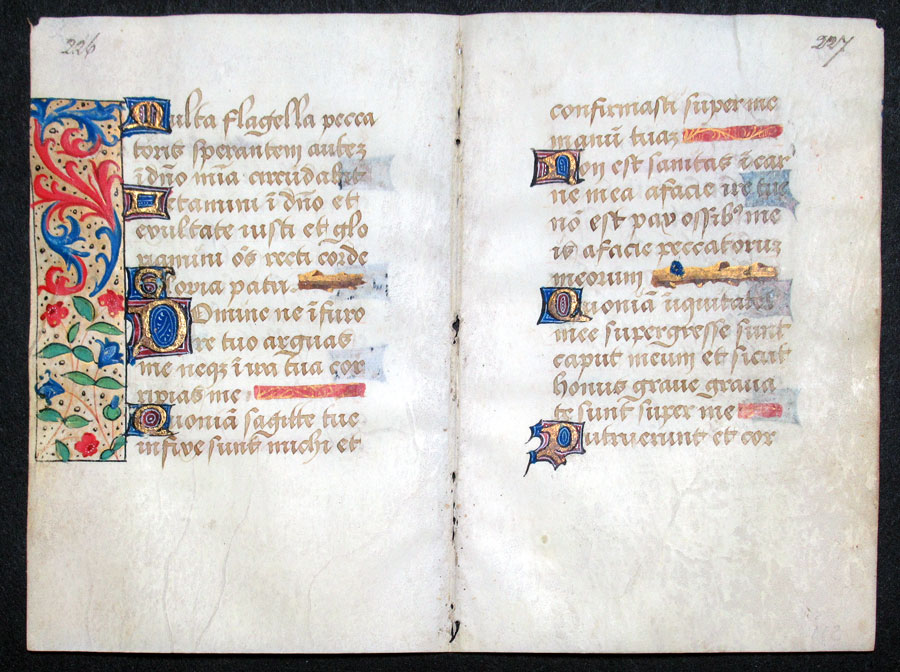 226
Multa flagella pecca
toris sperantem autez
ĩ dño mia circũdabit
Letamini ĩ dño et
exultate iusti et glo
riamini õs recti corde
Gloria patri.
Domine ne ĩ furo
re tuo arguas
me neqz ĩ ira tua cor
ripias me
Quoniã sagitte tue
infixe sunt michi et
227
confirmasti super me
manũ tuaz
Non est sanitas ĩ car
ne mea afacie ire tue
nõ est pax ossibꝰ me
is afacie peccatoruz
meorum
Quoniã iĩquitates
mee supergresse sunt
caput meum et sicut
honus graue graua
te sunt super me
Putruerunt et cor